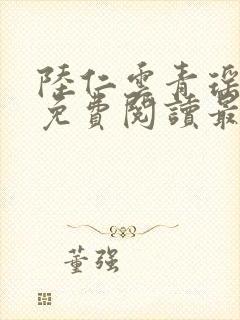 陸仁雲青瑤
免費閱讀最
董強